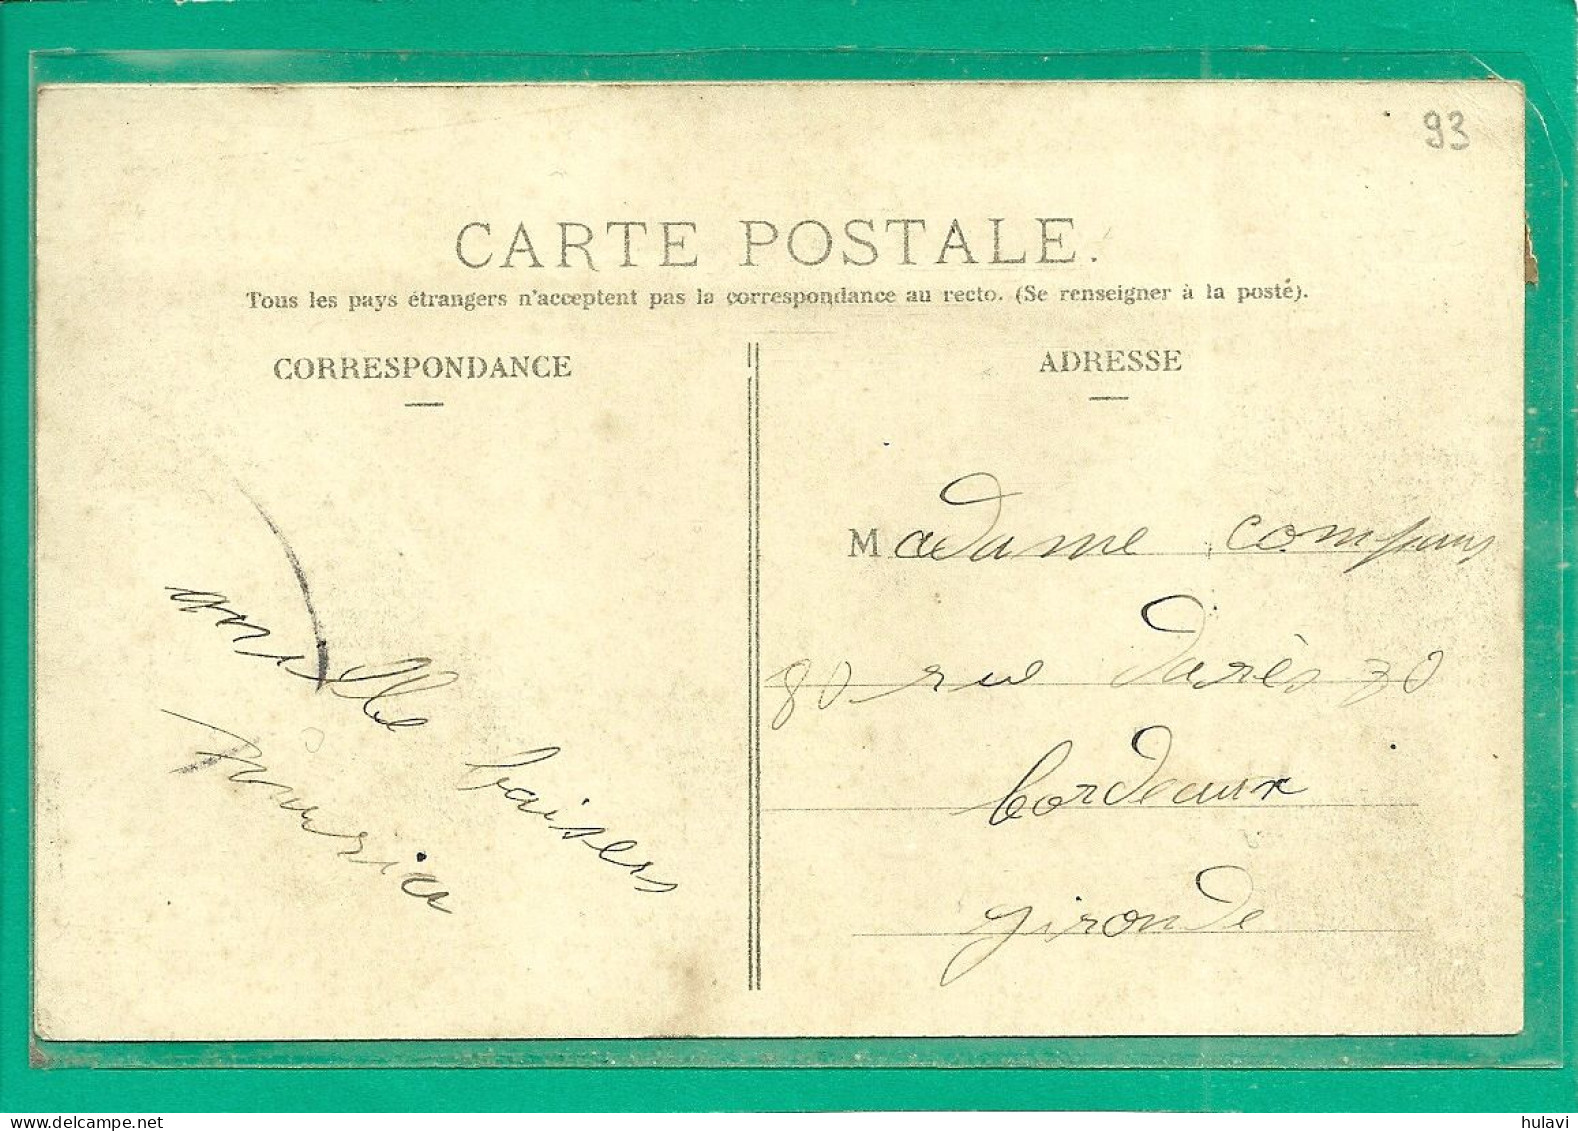 93
CARTE POSTALE.
Tous les pays étrangers n'acceptent pas la correspondance au recto. (Se renseigner à la poste).
CORRESPONDANCE
ADRESSE
mille baisers
Maurice
Madame Compans
80 rue Darès 80
bordeaux
gironde
delcampe.net
hulavi